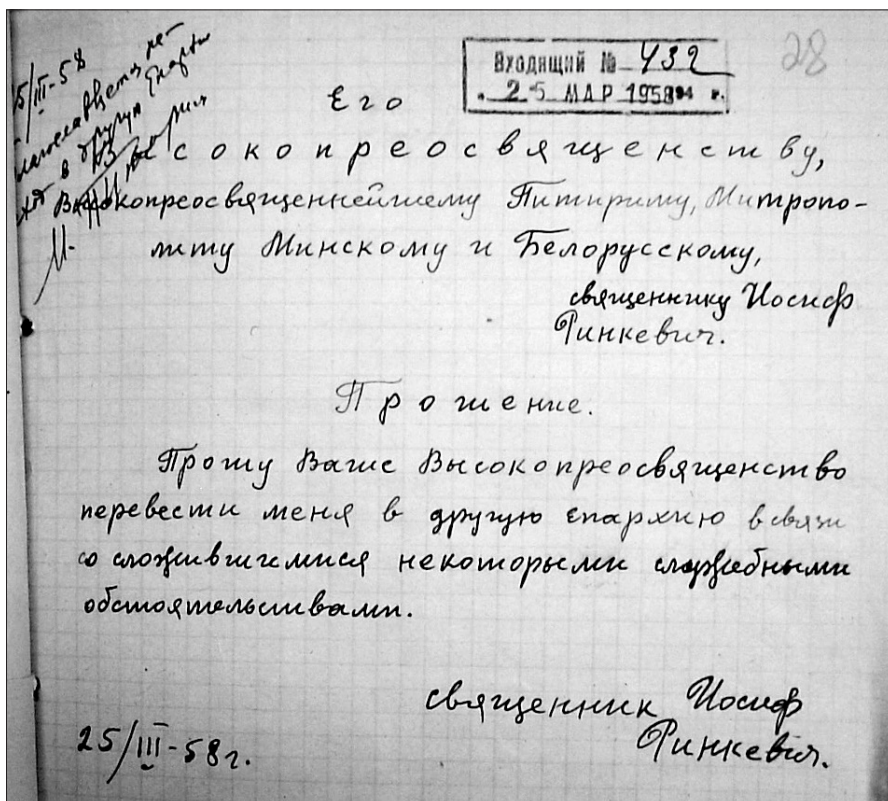 25/III-58
Благословляется пе-
в другую Епархию
М. Питирим
Входящий № 432
25 МАР 1958 г.
28
Его
Высокопреосвященству,
Высокопреосвященнейшему Питириму, Митропо-
литу Минскому и Белорусскому,
священнику Иосиф
Ринкевич.
Прошение.
Прошу Ваше Высокопреосвященство
перевести меня в другую епархию в связи
со сложившимися некоторыми служебными
обстоятельствами.
священник Иосиф
Ринкевич.
25/III-58г.